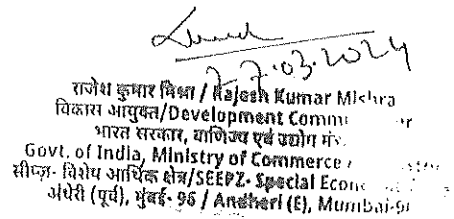 27.03.2024
राजेश कुमार मिश्रा / Rajesh Kumar Mishra
विकास आयुक्त/Development Commi
भारत सरकार, वाणिज्य एवं उद्योग मं
Govt. of India, Ministry of Commerce
सीप्ज़- विशेष आर्थिक क्षेत्र/SEEPZ- Special Econ
अंधेरी (पूर्व), मुंबई- 96 / Andheri (E), Mumbai-9